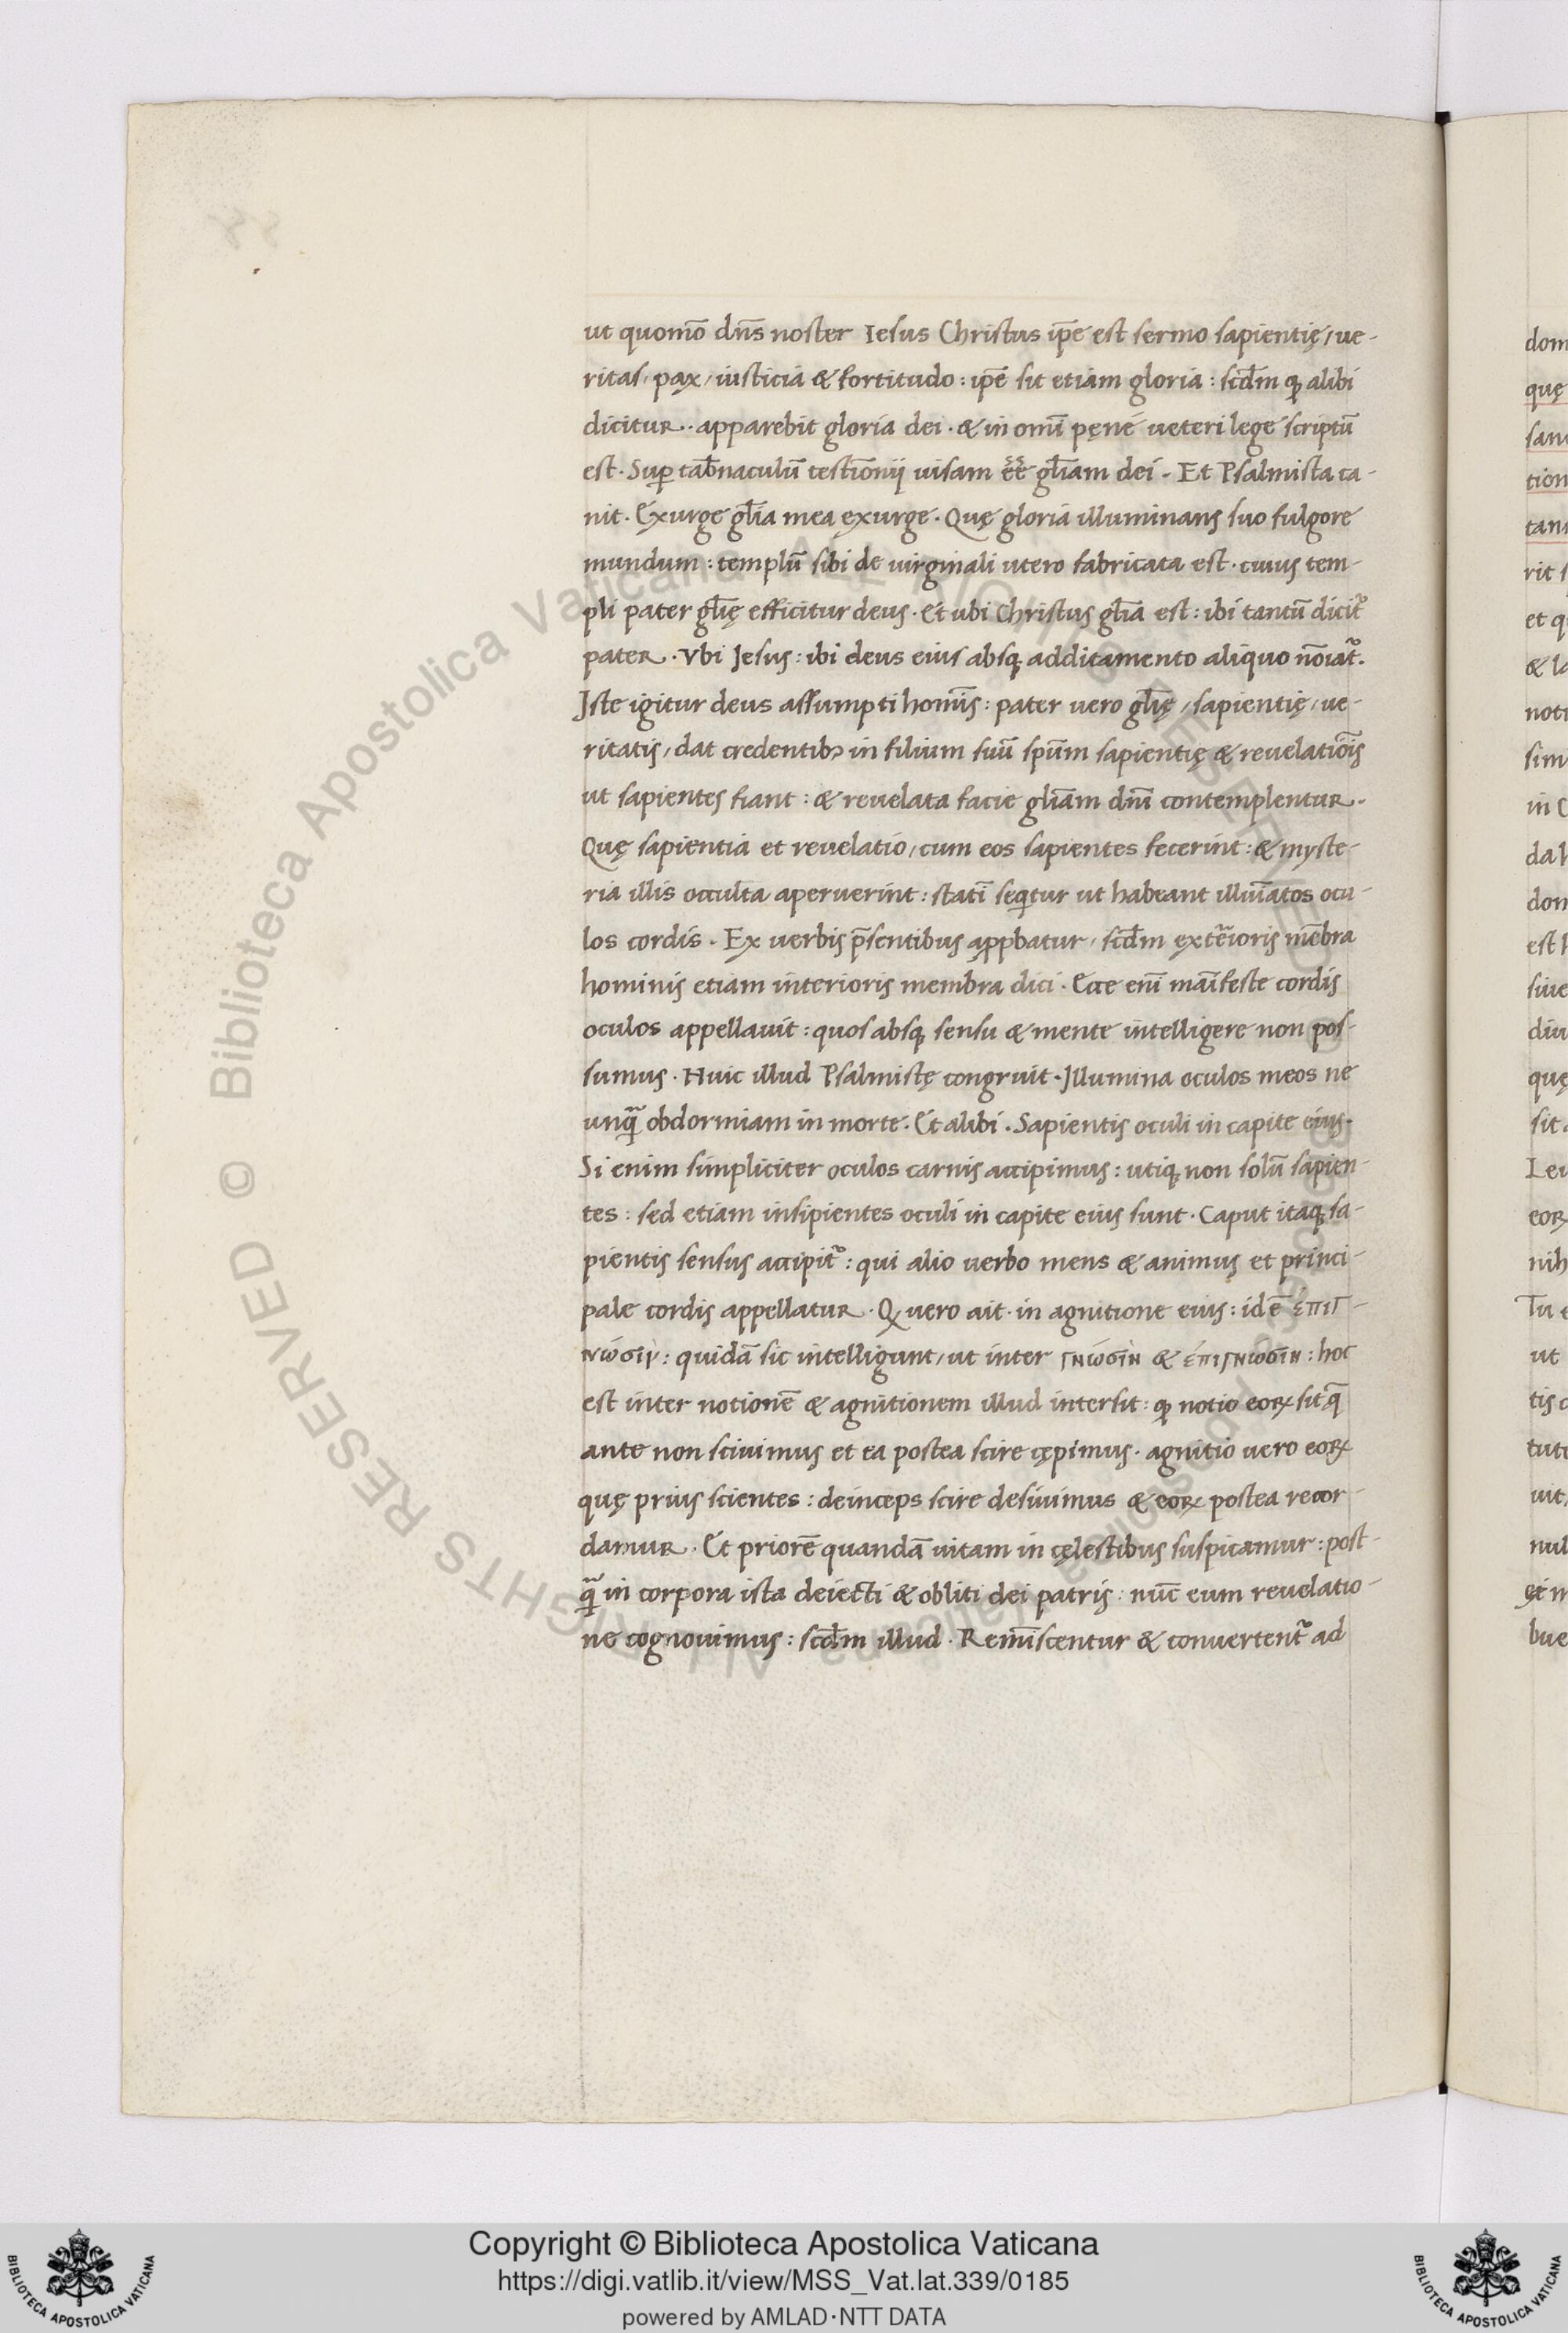 ut quomō dn̄s noster Iesus Christus ip̄e est sermo sapientię / ve-
ritas / pax / iusticia & fortitudo : ip̄e sit etiam gloria : scd̄m ꝙ alibi
dicitur . apparebit gloria dei . & in omī pęne ueteri lege scriptū
est . Suꝑ tab̄naculū testīonij uisam eē̄ gl̄iam dei . Et Psalmista ca-
nit . Exurge gl̄ia mea exurge . Quę gloria illuminans suo fulgore
mundum : templū sibi de uirginali utero fabricata est . cuius tem-
pli pater gl̄ię efficitur deus . Et ubi Christus gl̄ia est : ibi tantū dicit᷑
pater . Vbi Jesus : ibi deus eius absq; additamento aliquo nōiat᷑ .
Iste igitur deus assumpti homīs : pater uero gl̄ię / sapientię / ue-
ritatis / dat credentibꝫ in filium suū spūm sapientię & reuelatiōis
ut sapientes fiant : & reuelata facie gliām dnī contemplentur .
Quę sapientia et reuelatio / cum eos sapientes fecerint : & myste-
ria illis occulta aperuerint : statī seqitur ut habeant illuīatos ocu-
los cordis . Ex uerbis p̄sentibus aꝓpbatur / scd̄m exteīoris mēbra
hominis etiam interioris membra dici . Ecce enī maīfeste cordis
oculos appellauit : quos absq; sensu & mente intelligere non pos-
sumus . Huic illud Psalmistę congruit . Illumina oculos meos ne
unq̄ obdormiam in morte . Et alibi . Sapientis oculi in capite eius .
Si enim simpliciter oculos carnis accipimus : utiq; non solū sapien-
tes : sed etiam insipientes oculi in capite eius sunt . Caput itaq; sa-
pientis sensus accipit᷑ : qui alio uerbo mens & animus et princi-
pale cordis appellatur . Ꝙ uero ait . in agnitione eius : idē ἐπιΓ-
νώσιν : quidā sic intelligunt / ut inter γνώσιν & ἐπιγνώσιν : hoc
est inter notionē & agnitionem illud intersit : ꝙ notio eoꝝ sit q̄
ante non sciuimus et ea postea scire cępimus . agnitio uero eoꝝ
quę prius scientes : deinceps scire desiuimus & eoꝝ postea recor-
damur . Et priorē quandā uitam in cęlestibus suspicamur : post-
q̄ in corpora ista deiecti & obliti dei patris : nūc eum reuelatio-
ne cognouimus : scd̄m illud . Remīscentur & conuertent᷑ ad
dom
quę
san
tion
tan
rit s
et q
& la
noti
sim
in C
da h
don
est h
siue
diu
quę
sit a
Leu
eoꝝ
nih
Tu e
ut
tis c
tute
uit
nul
bue
Biblioteca Apostolica Vaticana ALL RIGHTS RESERVED © Biblioteca Apostolica Vaticana ALL RIGHTS RESERVED ©
Copyright © Biblioteca Apostolica Vaticana
https://digi.vatlib.it/view/MSS_Vat.lat.339/0185
powered by AMLAD·NTT DATA
BIBLIOTECA APOSTOLICA VATICANA
BIBLIOTECA APOSTOLICA VATICANA